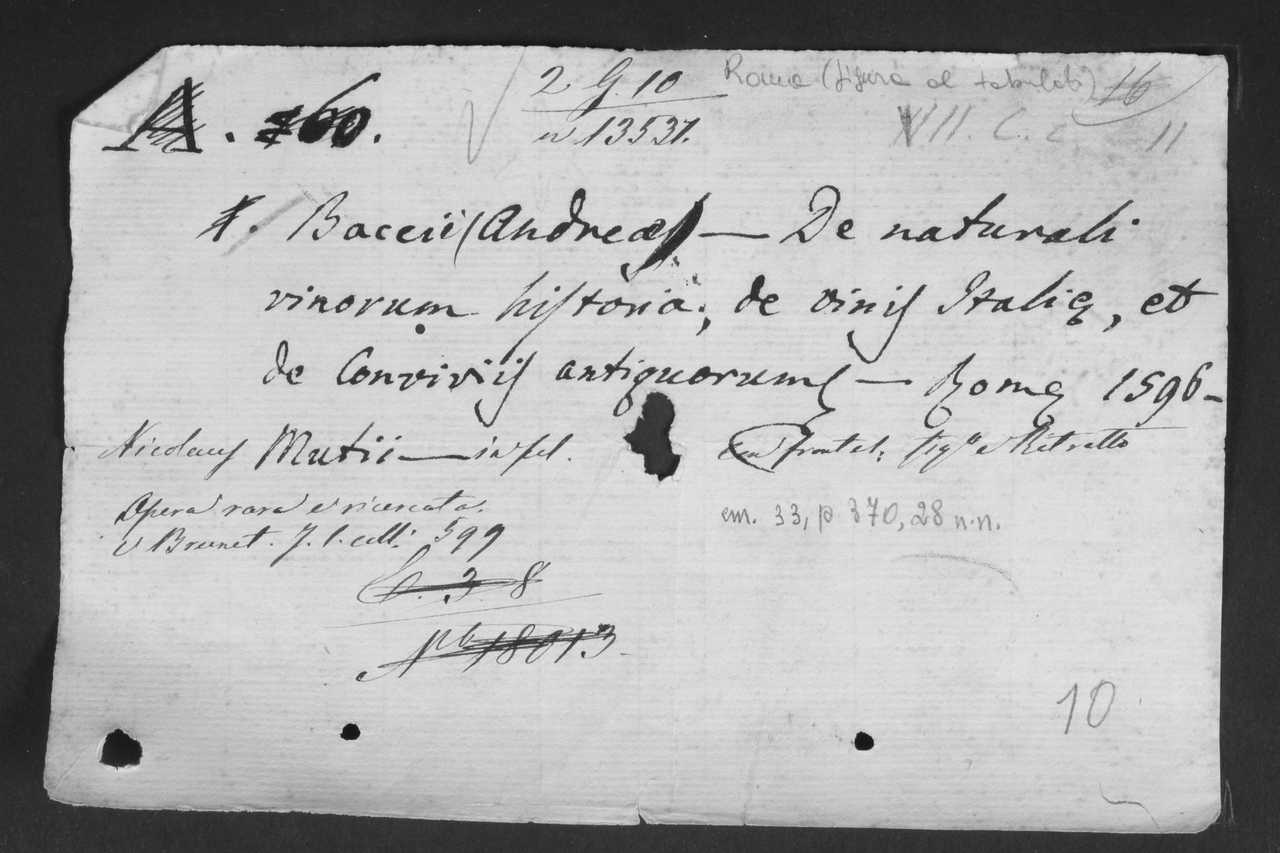 A. 760.
2 G. 10
n 13537.
Roma (figura al
16
VII. C. c. 11
1. Baccii (Andreæ) — De naturali
vinorum historia, de vinis Italiæ, et
de Conviviis antiquorum — Romæ 1596 -
Nicolaus Mutii — in fol.
frontes: fig.to e Ritratto
Opera rara e ricercata.
v Brunet. J. 1. coll. 599
cm. 33, p 370, 28 n.n.
C. 3 8
N.o 18013
10